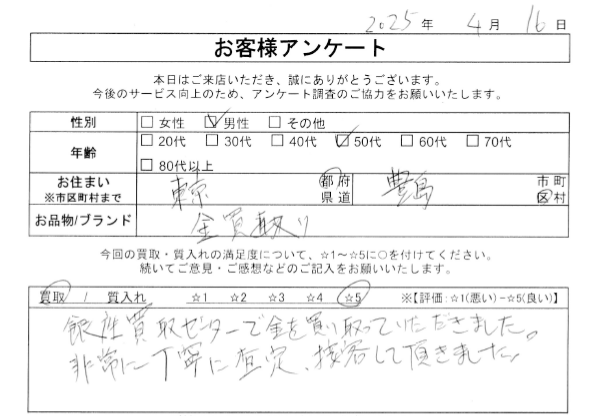 2025年 4月 16日
お客様アンケート
本日はご来店いただき、誠にありがとうございます。
今後のサービス向上のため、アンケート調査のご協力をお願いいたします。
性別 □女性 ☑男性 □その他
年齢 □20代 □30代 □40代 ☑50代 □60代 □70代
□80代以上
お住まい ※市区町村まで 東京 都府県道 豊島 市町区村
お品物/ブランド 金買取り
今回の買取・質入れの満足度について、☆1～☆5に○を付けてください。
続いてご意見・ご感想などのご記入をお願いいたします。
買取 / 質入れ ☆1 ☆2 ☆3 ☆4 ☆5 ※【評価:☆1(悪い)−☆5(良い)】
銀座買取センターで金を買い取っていただきました。
非常に丁寧に査定、接客して頂きました。